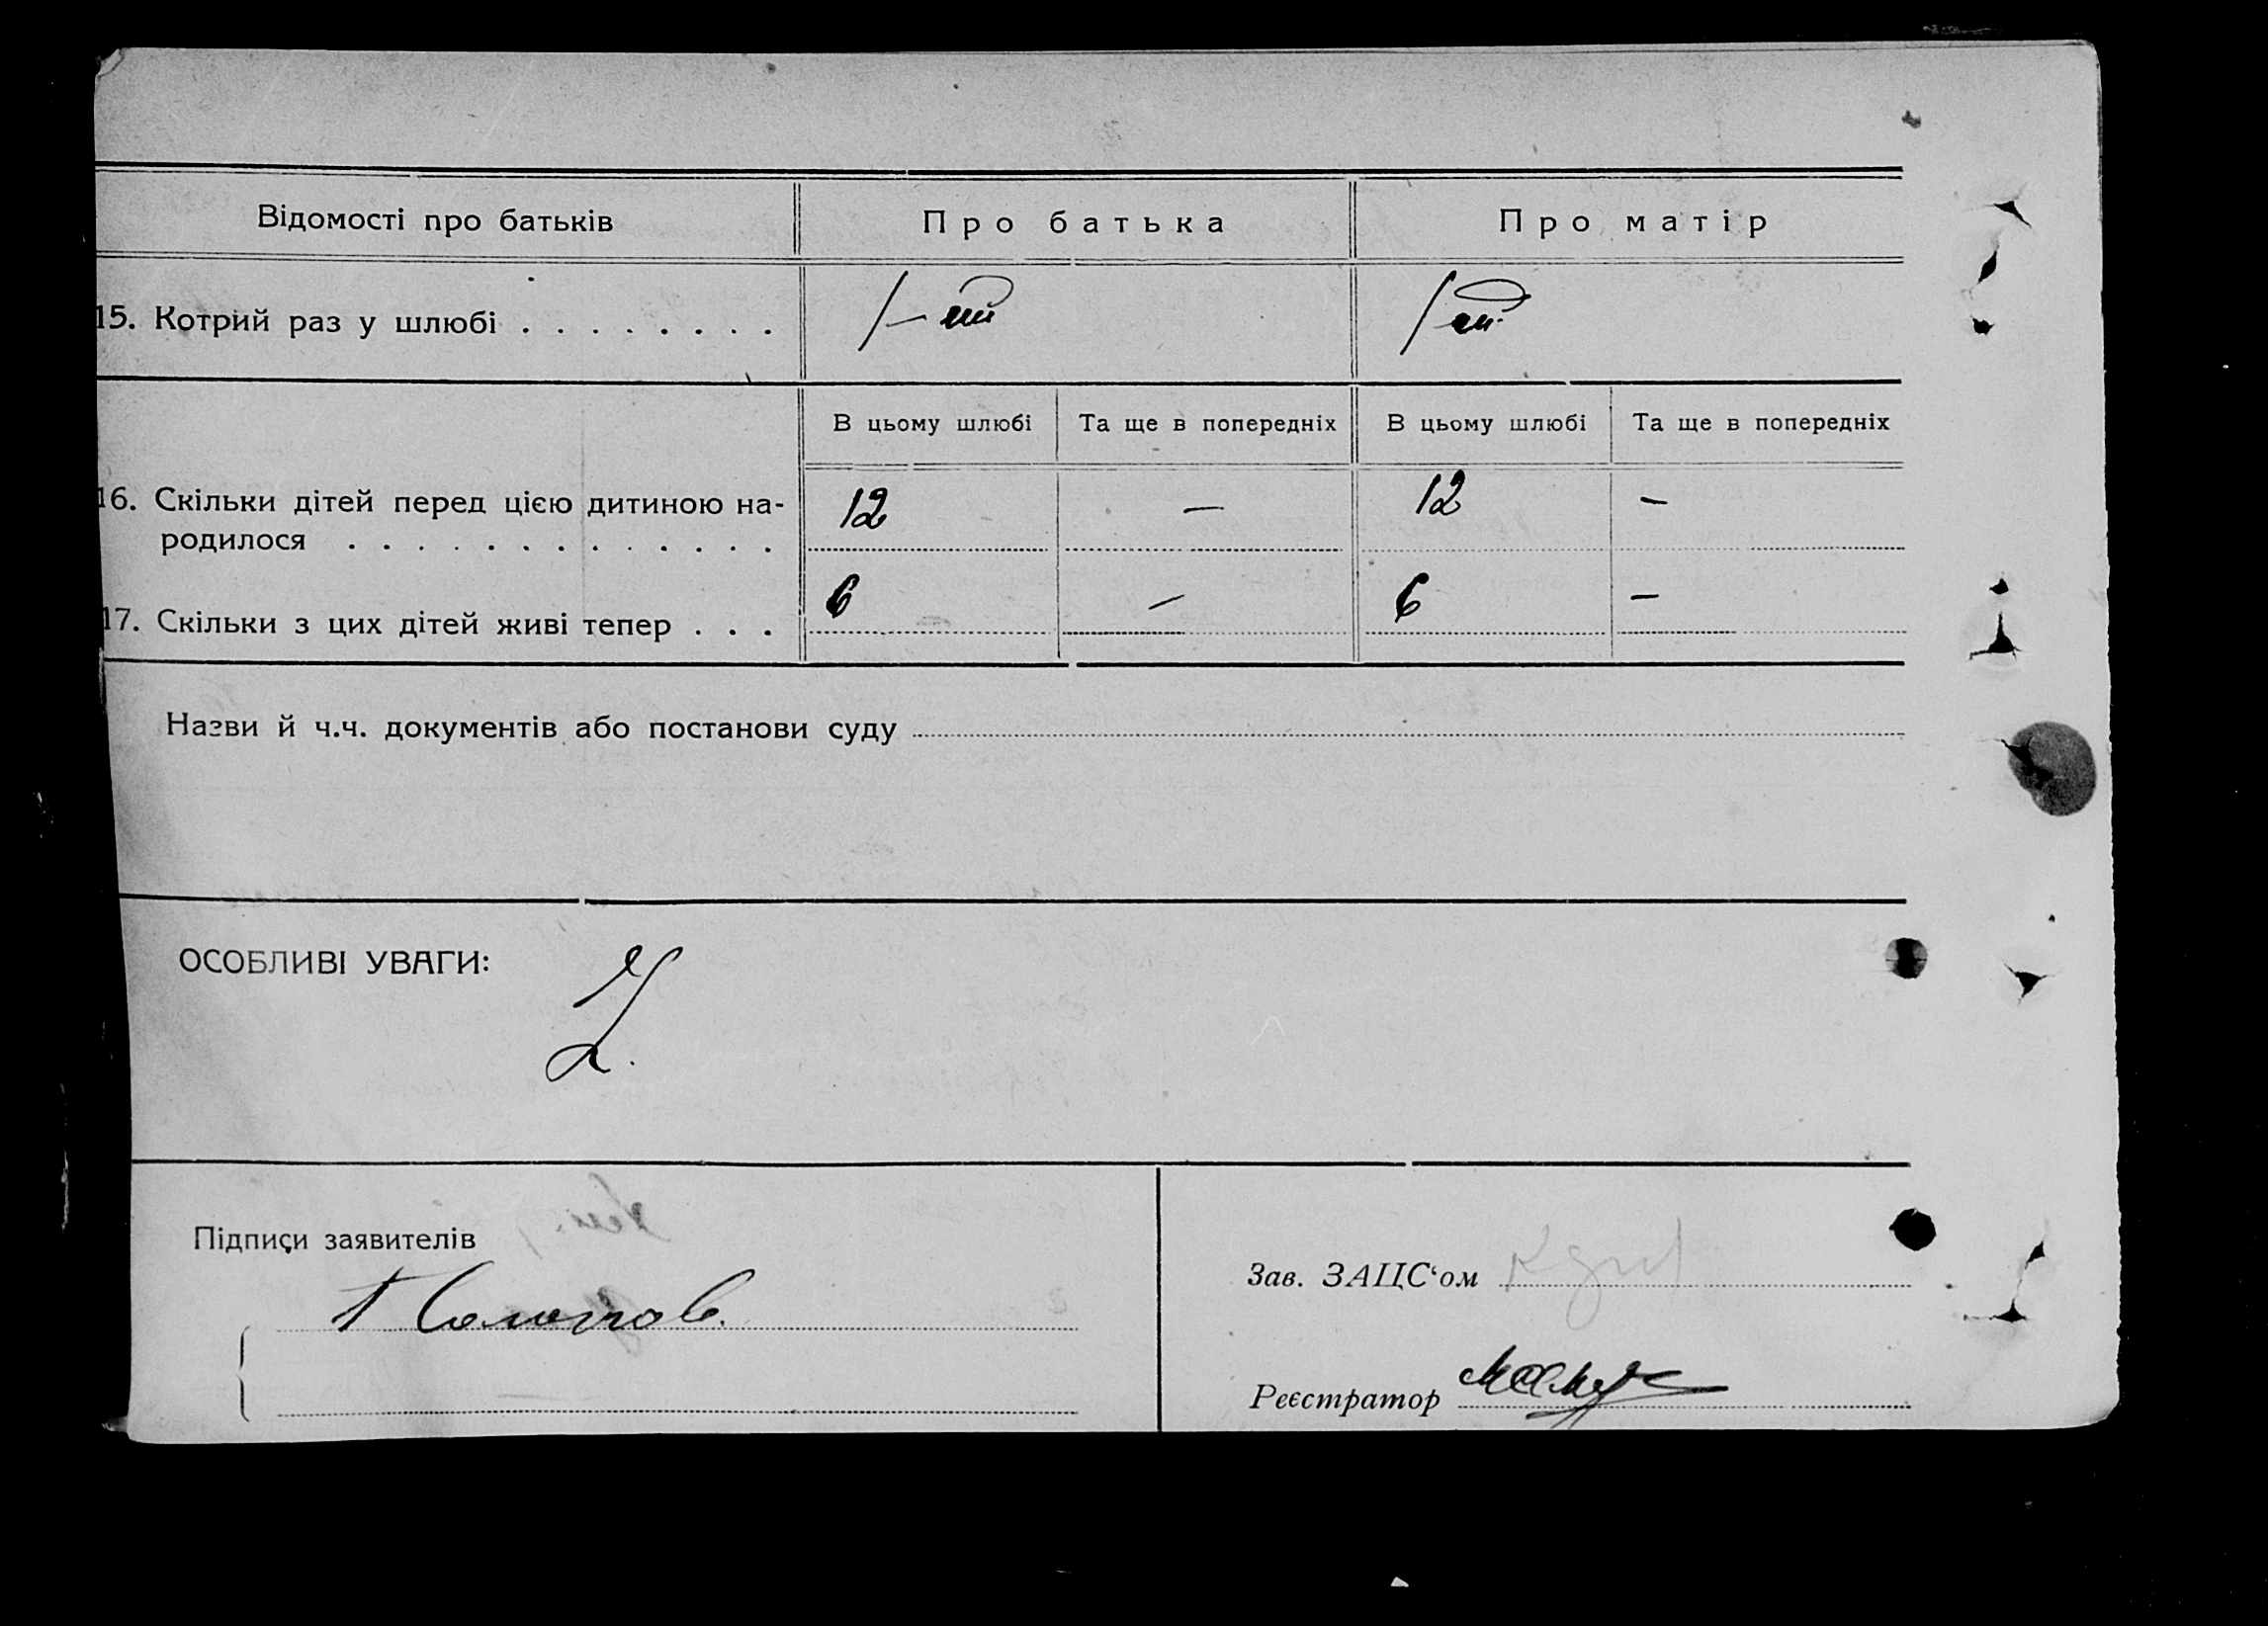 Відомості про батьків Про батька Про матір
15. Котрий раз у шлюбі . . . . . . . . 1-ий 1 ий
В цьому шлюбі Та ще в попередніх В цьому шлюбі Та ще в попередніх
16. Скільки дітей перед цією дитиною на- 12 — 12 —
родилося . . . . . . . . . . . . .
17. Скільки з цих дітей живі тепер . . . 6 — 6 —
Назви й ч.ч. документів або постанови суду
ОСОБЛИВІ УВАГИ:
Підписи заявителів
Зав. ЗАЦС‘ом
Реєстратор